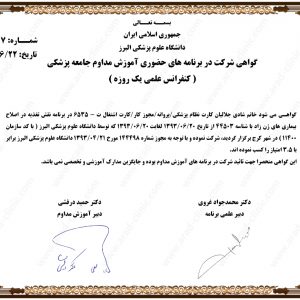 بسمه تعالی
جمهوری اسلامی ایران
دانشگاه علوم پزشکی البرز
شماره: ۷
تاریخ: ۶/۲۲
گواهی شرکت در برنامه های حضوری آموزش مداوم جامعه پزشکی
( کنفرانس علمی یک روزه )
گواهی می شود خانم شادی جلالیان کارت نظام پزشکی/پروانه/مجوز کار/کارت اشتغال ت - ۶۵۳۵ در برنامه نقش تغذیه در اصلاح
بیماری های زن زاد با شناسه ۴۴۵۰۳ از تاریخ ۱۳۹۳/۰۶/۲۰ لغایت ۱۳۹۳/۰۶/۲۰ که توسط دانشگاه علوم پزشکی البرز ( با کد سازمان
۱۱۴۰۰ ) در شهر کرج برگزار گردید، شرکت نموده و با توجه به مجوز شماره ۱۴۴۴۹۸ مورخ ۱۳۹۳/۰۴/۲۱ دانشگاه علوم پزشکی البرز برابر
با ۳.۵ امتیاز را کسب نموده اند.
این گواهی منحصرا جهت تأیید شرکت در برنامه های آموزش مداوم بوده و جایگزین مدارک آموزشی و تخصصی نمی باشد.
دکتر محمدجواد غروی
دبیر علمی برنامه
دکتر حمید درفشی
دبیر آموزش مداوم